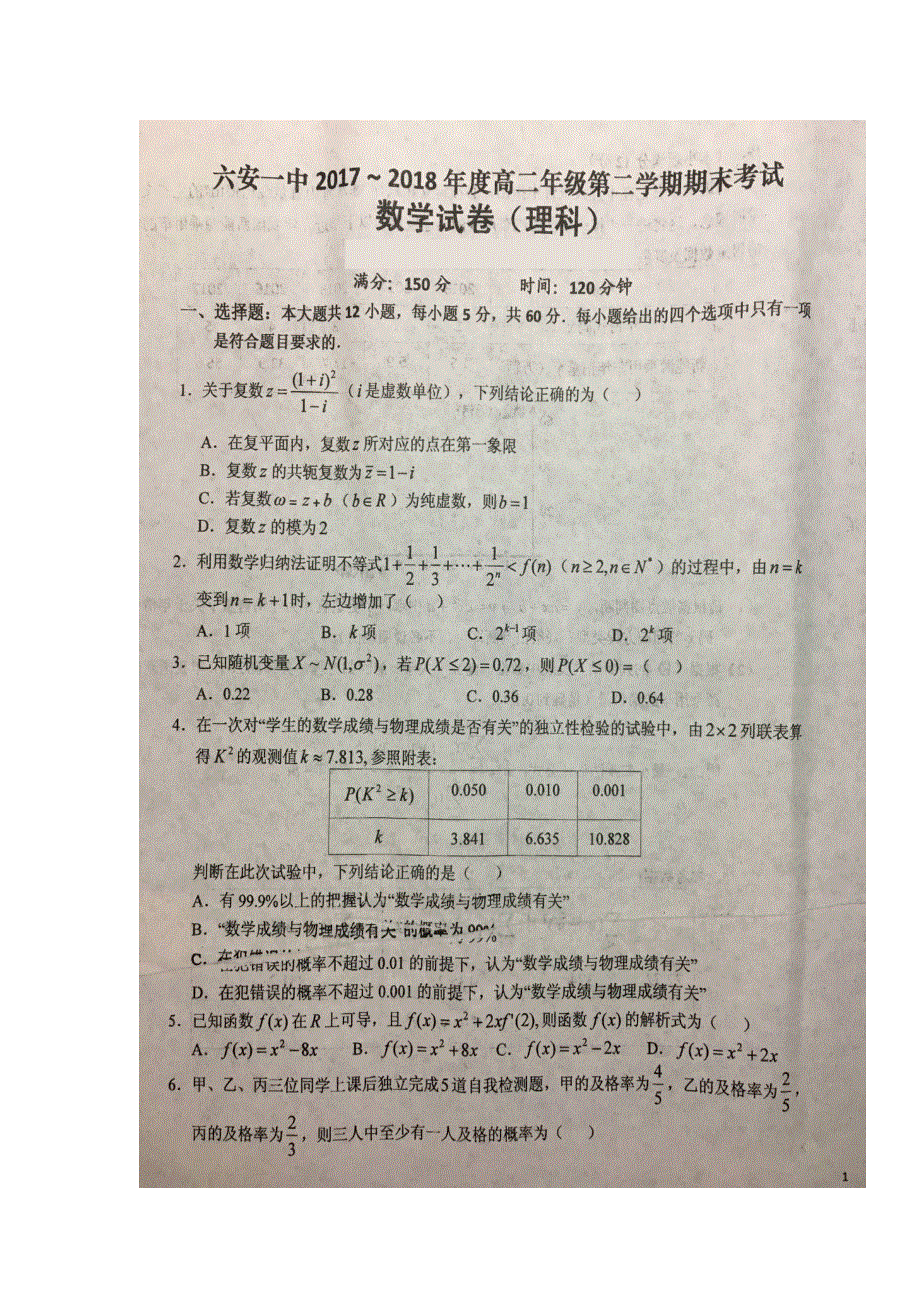 六安一中 2017 ~ 2018 年度高二年级第二学期期末考试
数学试卷（理科）
满分：150 分 时间：120 分钟
一、选择题：本大题共 12 小题，每小题 5 分，共 60 分．每小题给出的四个选项中只有一项
是符合题目要求的．
1．关于复数 z = (1+i)²/(1−i)（i 是虚数单位），下列结论正确的为（ ）
A．在复平面内，复数 z 所对应的点在第一象限
B．复数 z 的共轭复数为 z̄ = 1−i
C．若复数 ω = z + b（b∈R）为纯虚数，则 b = 1
D．复数 z 的模为 2
2．利用数学归纳法证明不等式 1+1/2+1/3+⋯+1/2ⁿ < f(n)（n≥2, n∈N*）的过程中，由 n = k
变到 n = k+1 时，左边增加了（ ）
A．1 项 B．k 项 C．2ᵏ⁻¹ 项 D．2ᵏ 项
3．已知随机变量 X ~ N(1,σ²)，若 P(X ≤ 2) = 0.72，则 P(X ≤ 0) =（ ）
A．0.22 B．0.28 C．0.36 D．0.64
4．在一次对“学生的数学成绩与物理成绩是否有关”的独立性检验的试验中，由 2×2 列联表算
得 K² 的观测值 k ≈ 7.813, 参照附表：
P(K² ≥ k) 0.050 0.010 0.001
k 3.841 6.635 10.828
判断在此次试验中，下列结论正确的是（ ）
A．有 99.9% 以上的把握认为“数学成绩与物理成绩有关”
B．“数学成绩与物理成绩有关”的概率为 99%
C．在犯错误的概率不超过 0.01 的前提下，认为“数学成绩与物理成绩有关”
D．在犯错误的概率不超过 0.001 的前提下，认为“数学成绩与物理成绩有关”
5．已知函数 f(x) 在 R 上可导，且 f(x) = x² + 2xf'(2), 则函数 f(x) 的解析式为（ ）
A．f(x) = x² − 8x B．f(x) = x² + 8x C．f(x) = x² − 2x D．f(x) = x² + 2x
6．甲、乙、丙三位同学上课后独立完成 5 道自我检测题，甲的及格率为 4/5，乙的及格率为 2/5，
丙的及格率为 2/3，则三人中至少有一人及格的概率为（ ）
1